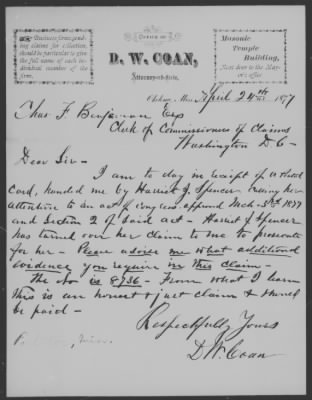 Business firms sending claims for collection, should be particular to give the full name of each individual member of the firm.
OFFICE OF
D. W. COAN,
Attorney-at-Law,
Masonic Temple Building,
Next door to the Mayor's office
Okolona, Miss., April 24th 1877
Thos. F. Benjaman Esq
Clerk of Commissioners of Claims
Washington D.C-
Dear Sir-
I am to day in receipt of a Postal
Card, handed me by Harriet J. Spencer calling her
attention to an act of Congress approved Mch. 3rd 1877
and Section 2 of said act - Harriet J Spencer
has turned over her claim to me to prosecute
for her - Please advise me what additional
evidence you require in this claim-
The No is 8736 - From what I learn
this is an honest & just claim & should
be paid-
Respectfully Yours
D.W. Coan